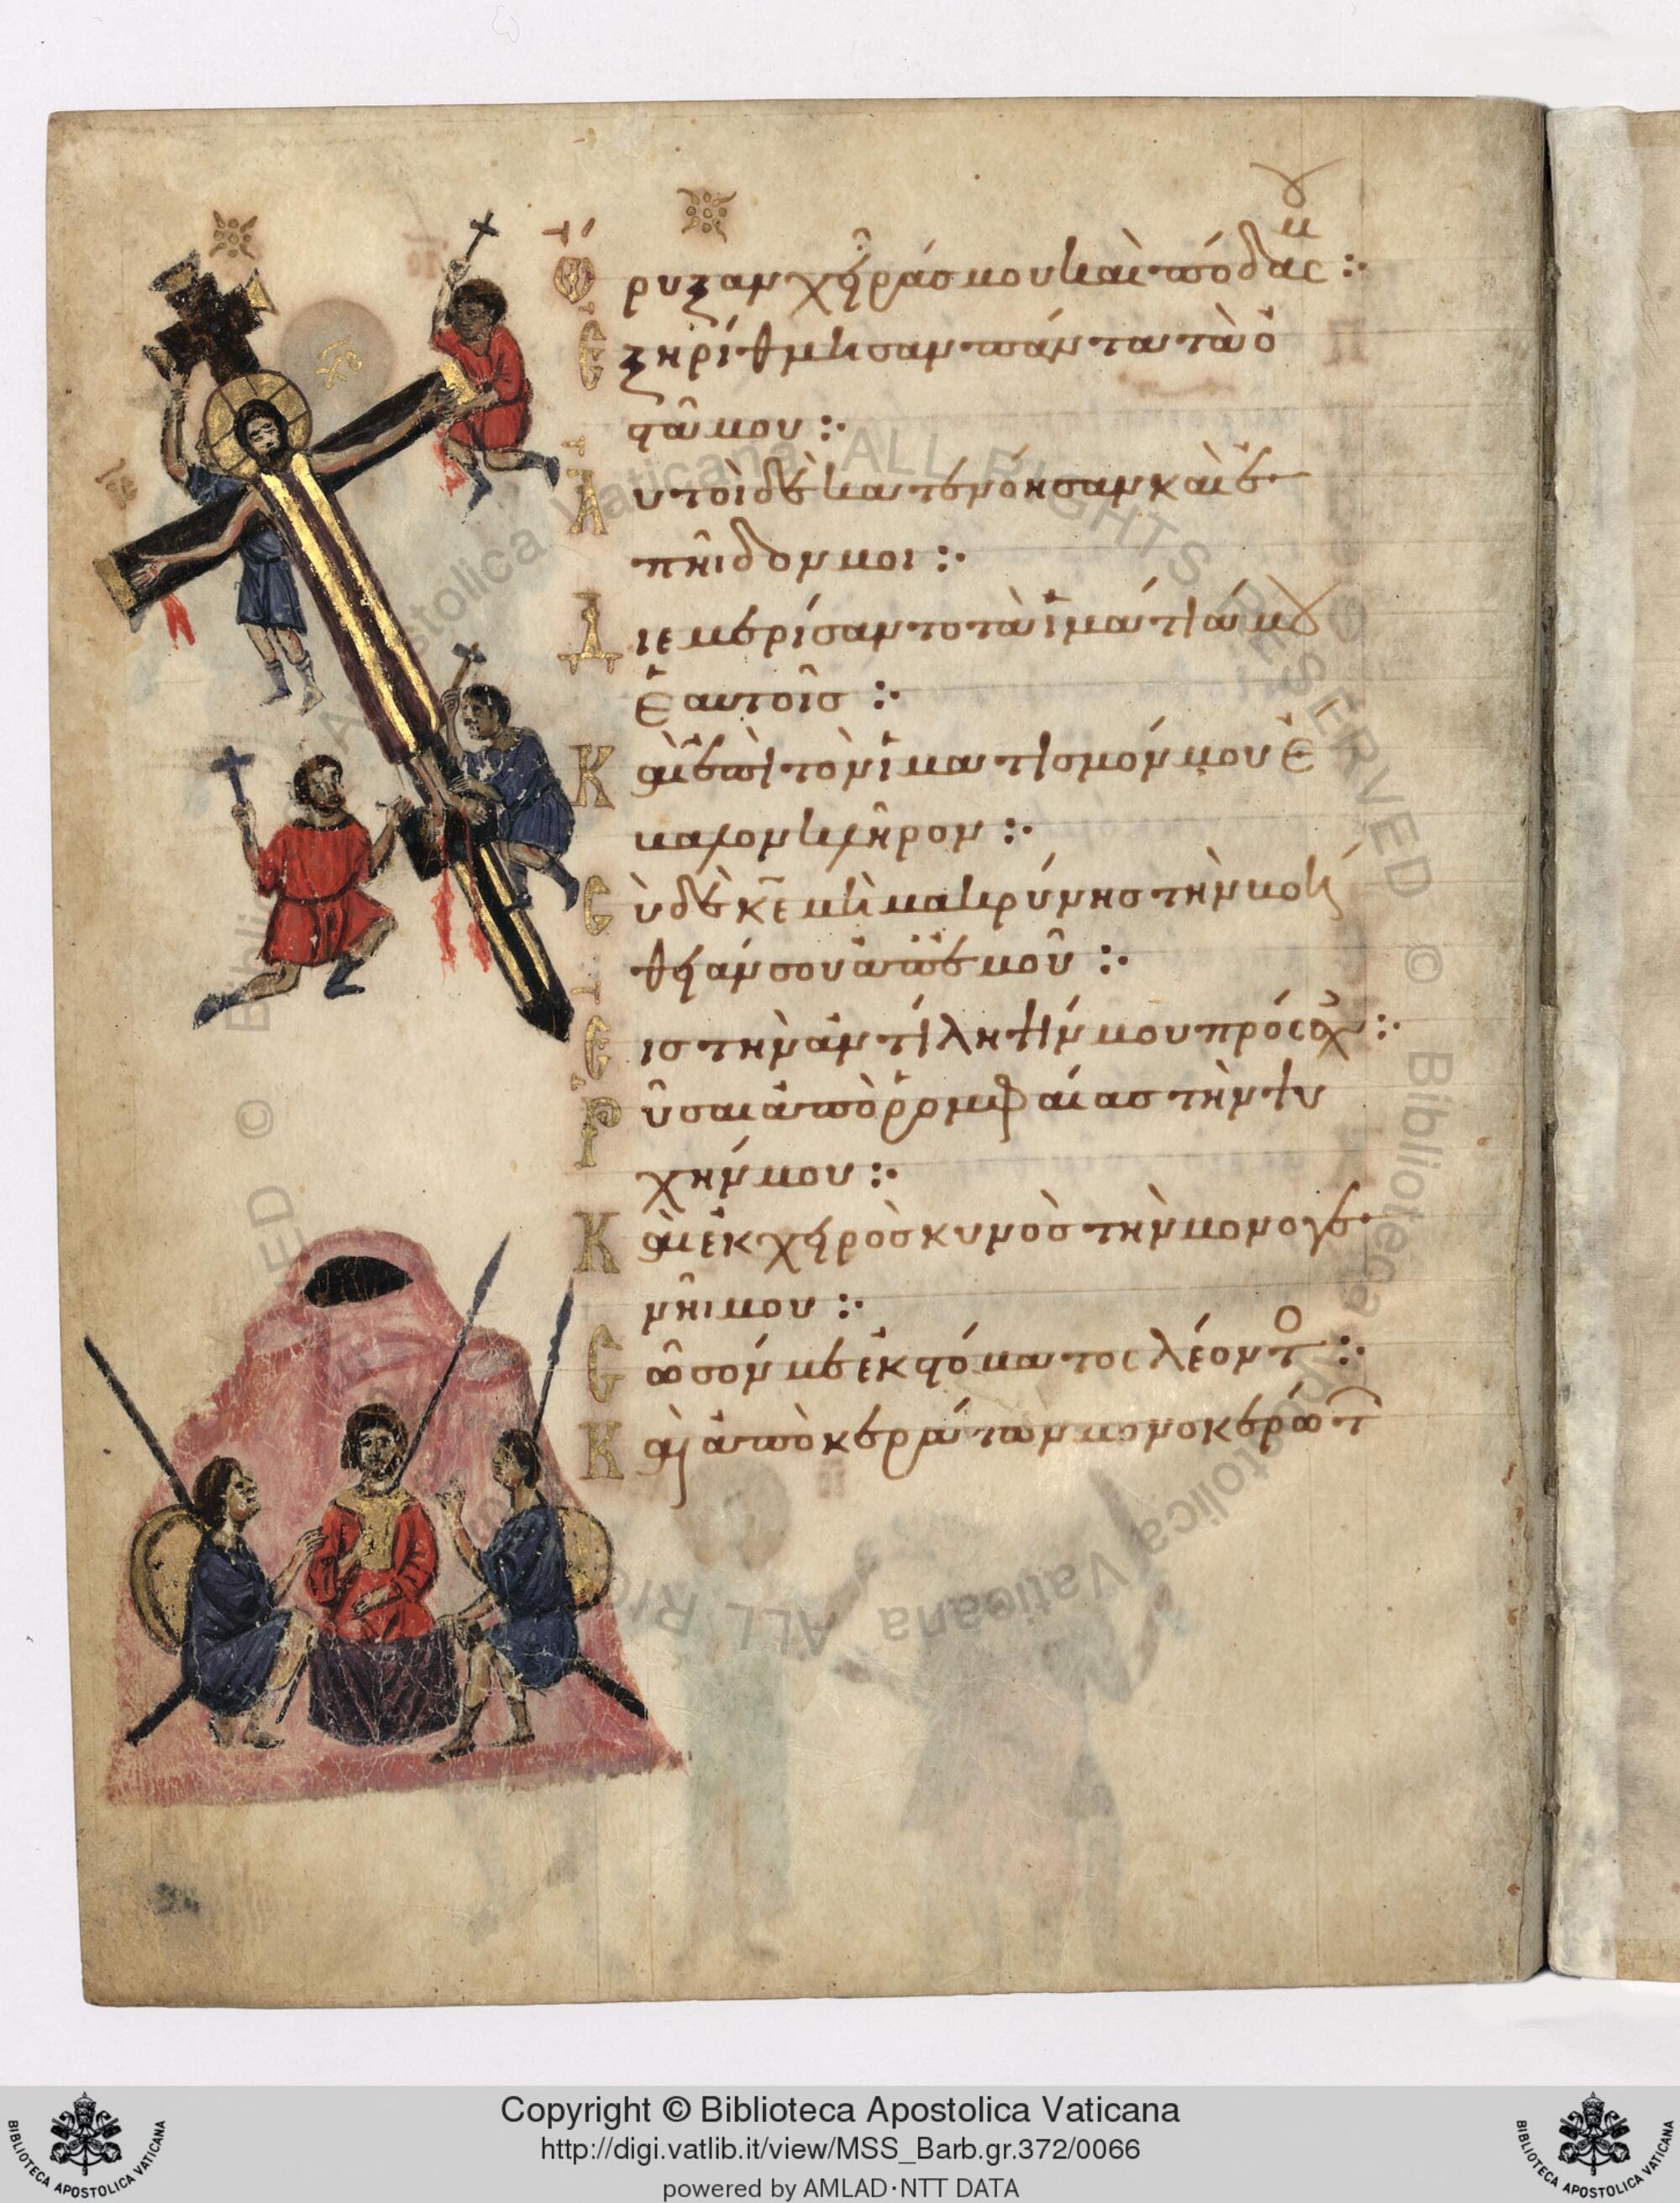 Ὤρυξαν χεῖράς μου καὶ πόδας μου :·
Ἐξηρίθμησαν πάντα τὰ ὀ
στᾶ μου :·
Αὐτοὶ δὲ κατενόησαν καὶ ἐ
πῆιδόν μοι :·
Διεμερίσαντο τὰ ἱμάτιά μου
ἑαυτοῖς :·
Καὶ ἐπὶ τὸν ἱματισμόν μου ἔ
βαλον κλῆρον :·
Σὺ δὲ κε μὴ μακρύνης τὴν βοή
θειάν σου ἀπ' ἐμοῦ :·
Εἰς τὴν ἀντίληψίν μου πρόσχες :·
Ῥῦσαι ἀπὸ ῥομφαίας τὴν ψυ
χήν μου :·
Καὶ ἐκ χειρὸς κυνὸς τὴν μονογε
νῆι μου :·
Σῶσόν με ἐκ στόματος λέοντος :·
Καὶ ἀπὸ κεράτων μονοκερώτων
Copyright © Biblioteca Apostolica Vaticana
http://digi.vatlib.it/view/MSS_Barb.gr.372/0066
powered by AMLAD·NTT DATA
BIBLIOTECA APOSTOLICA VATICANA
BIBLIOTECA APOSTOLICA VATICANA